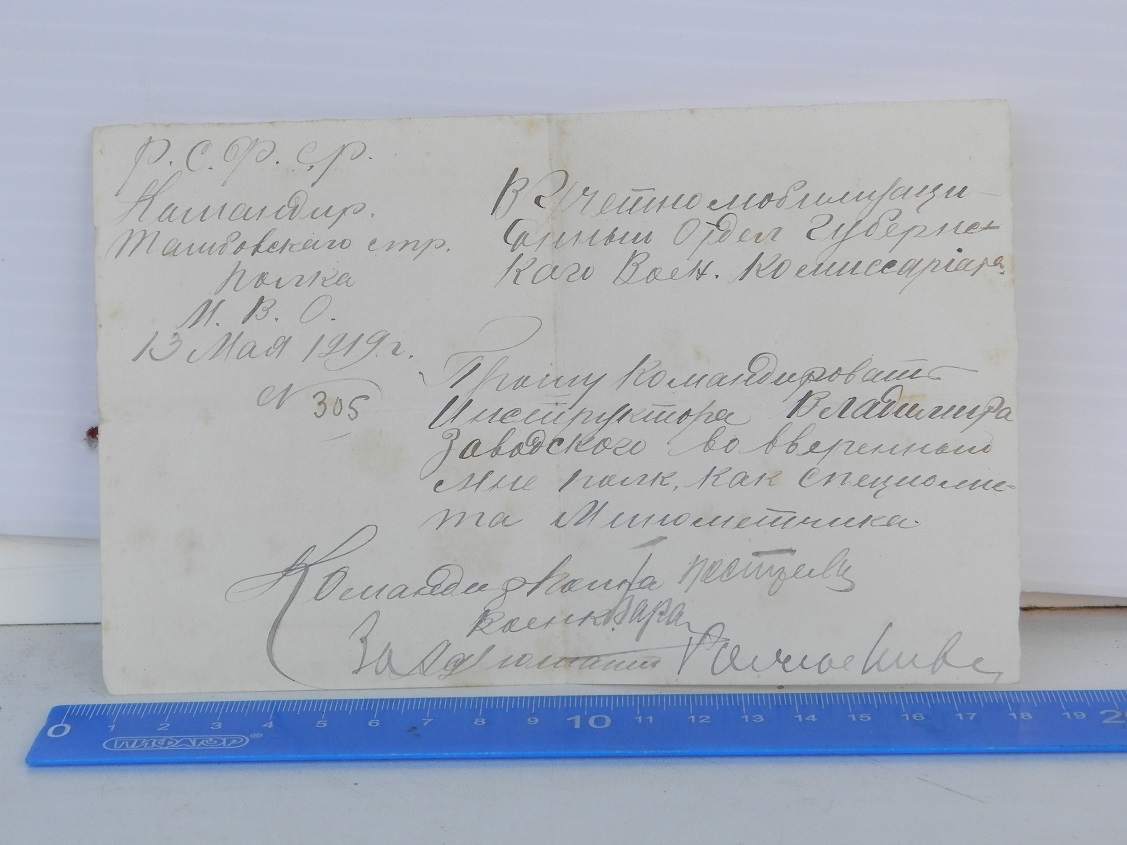 Р. С. Ф. С. Р.
Командир.
Тамбовскаго стр.
полка
М. В. О.
13 Мая 1919 г.
N 305
В Учетно мобилизаци
онный Отдел Губернс-
каго Воен. Комиссаріата.
Прошу Командировать
Инструктора Владимира
Заводского во вверенный
мне полк, как специолис-
та Минометчика.
Командир полка
Военком
За Адъютанта
0 1 2 3 4 5 6 7 8 9 10 11 12 13 14 15 16 17 18 19 20